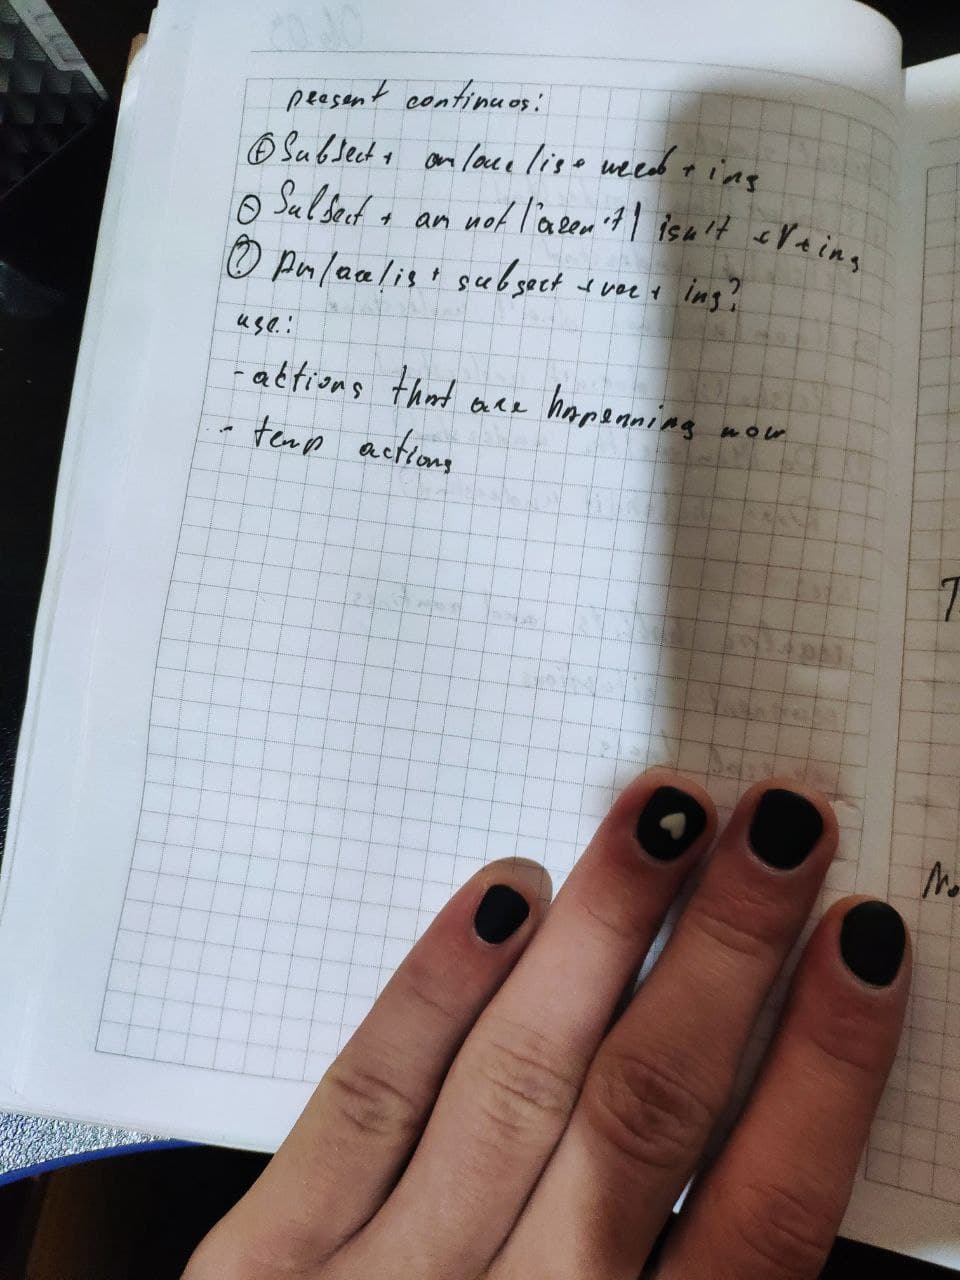 present continuos:
⊕ Subject + am/are/is + weeb + ing
⊖ Subject + am not / aren't / isn't + V + ing
? Am/are/is + subject + ver + ing?
use:
- actions that are happenning now
- temp actions
Mo